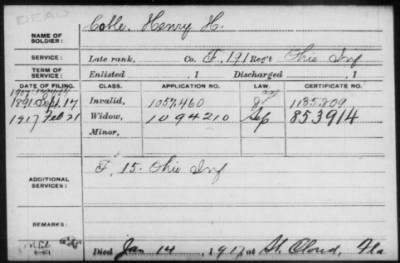 DEAD
NAME OF SOLDIER: Coble, Henry H.
SERVICE: Late rank, Co. F, 191 Reg't Ohio Inf
TERM OF SERVICE: Enlisted , 1 Discharged , 1
DATE OF FILING. CLASS. APPLICATION NO. LAW. CERTIFICATE NO.
1891 Sept. 17 Invalid, 1052.460 1135.809
1917 Feb 21 Widow, 1094210 853914
Minor,
ADDITIONAL SERVICES: F. 15. Ohio Inf
REMARKS:
Died Jan 14, 1917 at St. Cloud, Fla